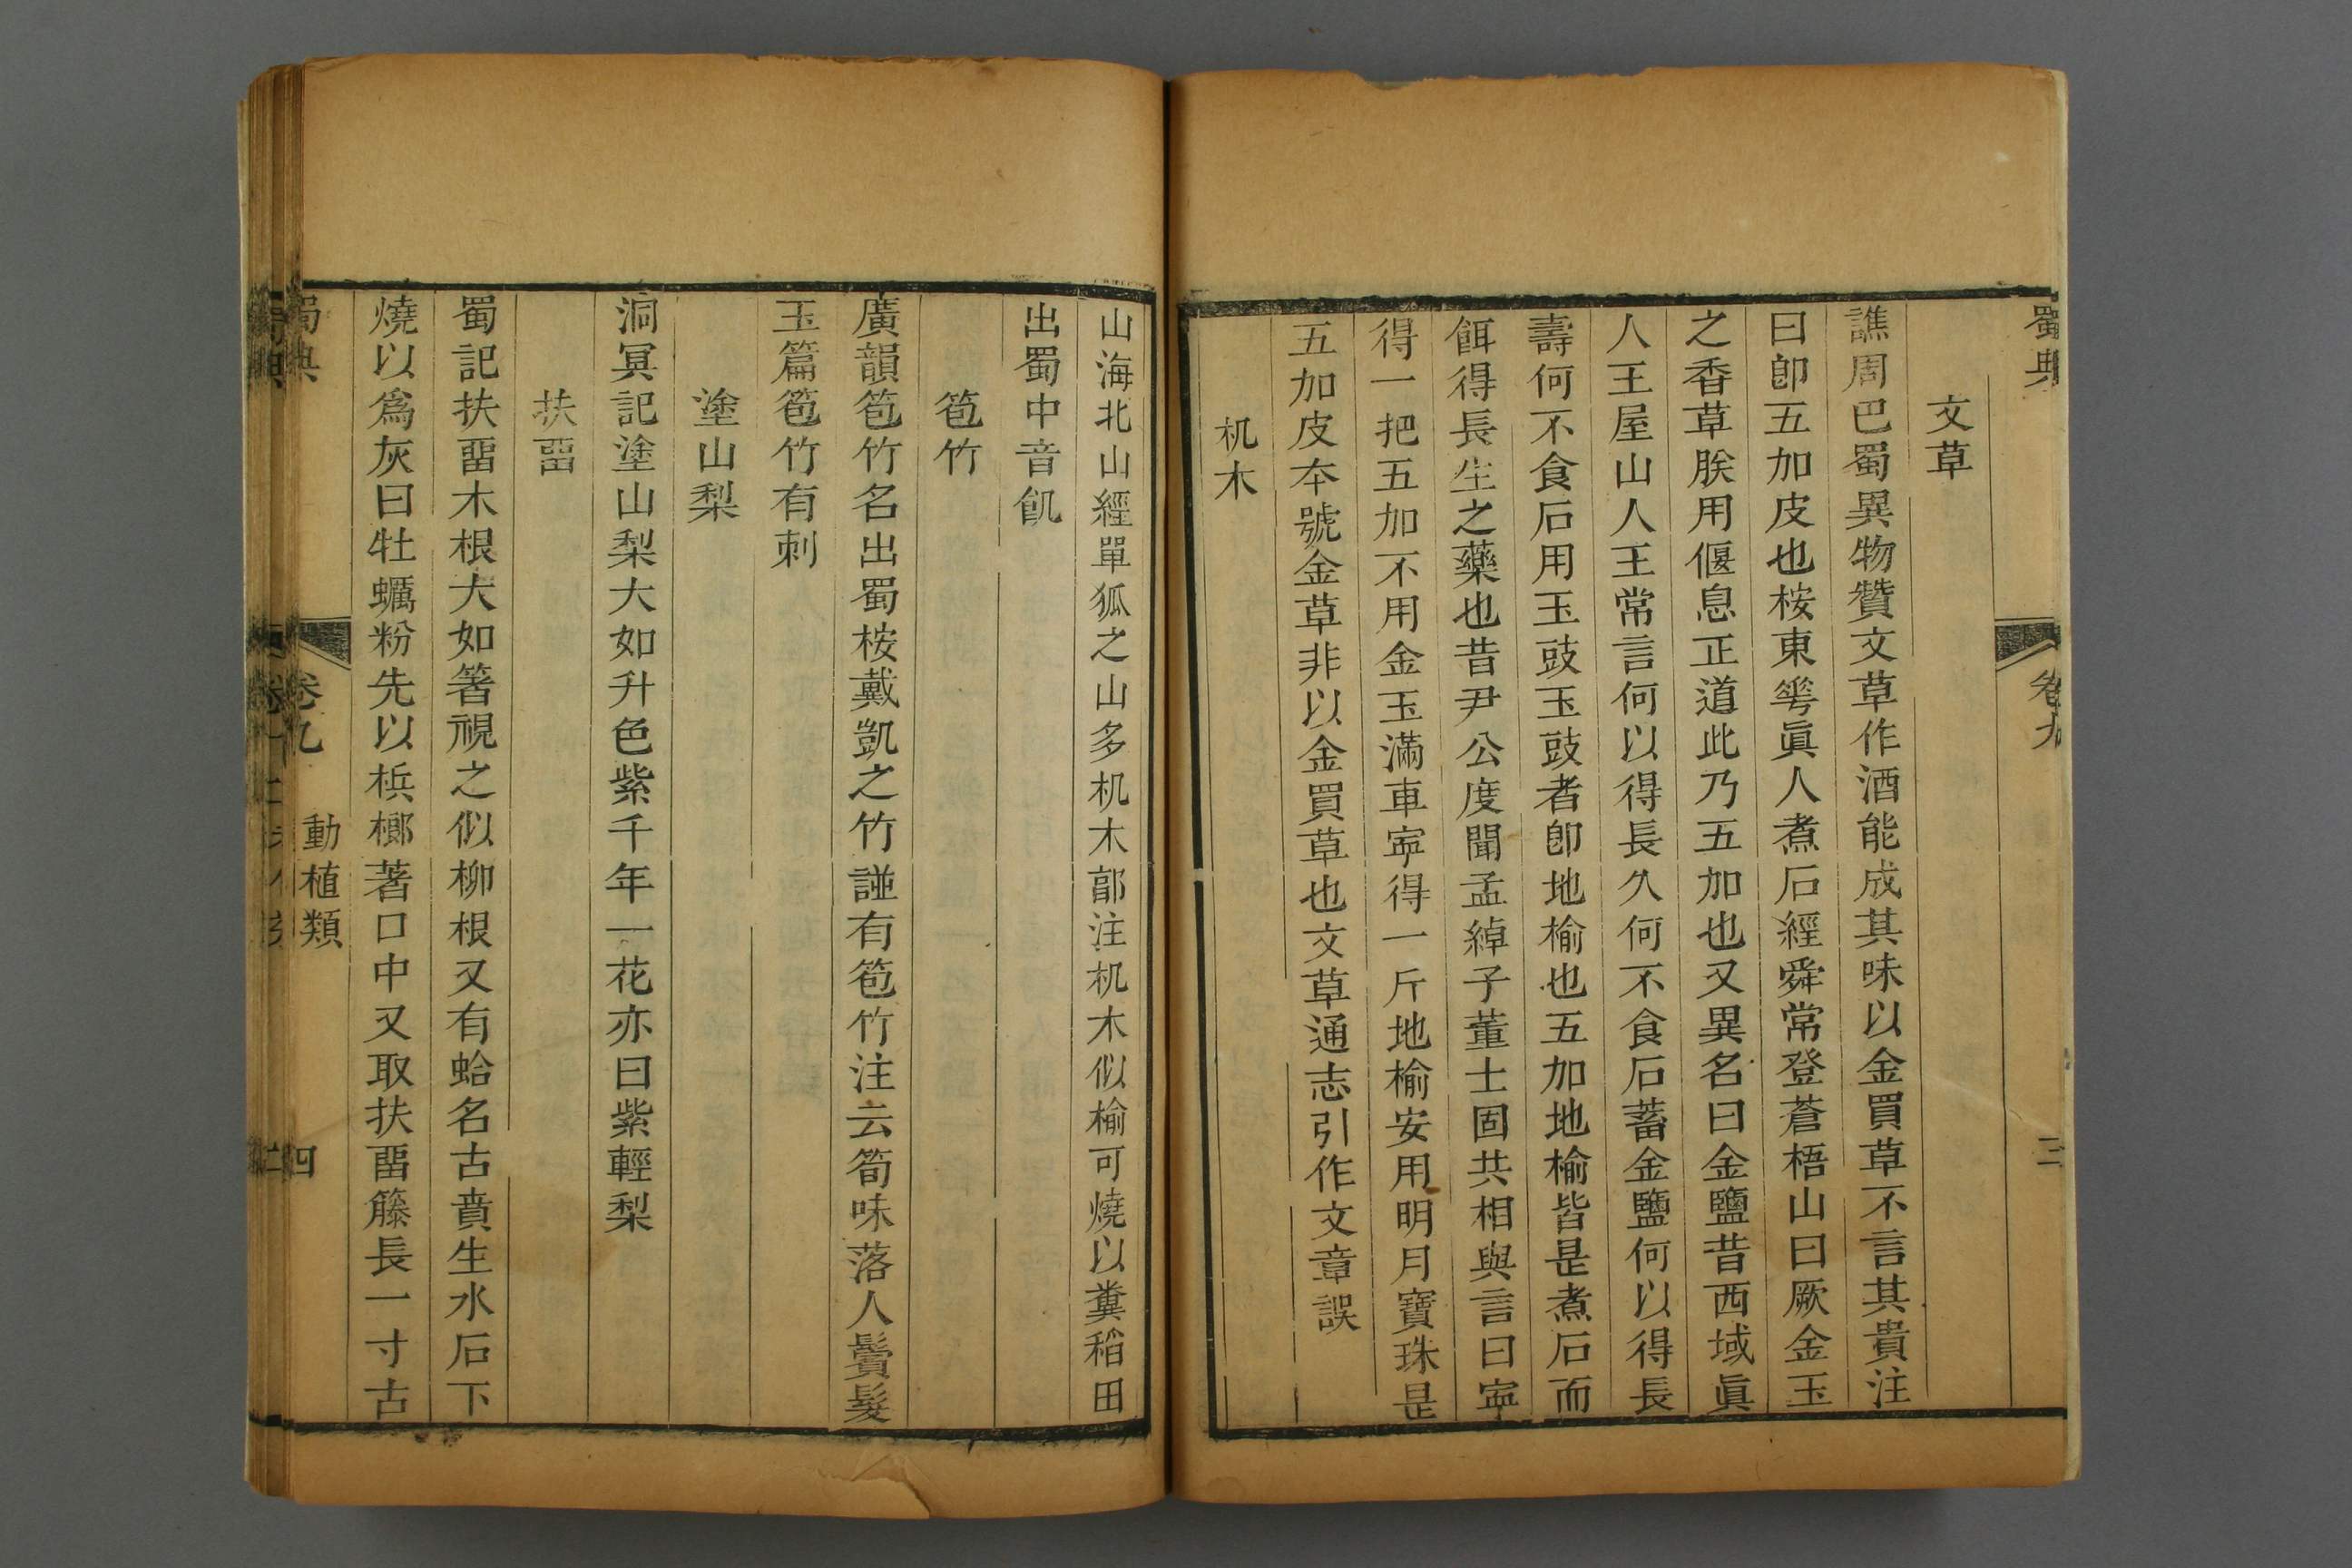 蜀典
卷九
三
文草
譙周巴蜀異物贊文草作酒能成其味以金買草不言其貴注
曰卽五加皮也桉東華眞人煮石經舜常登蒼梧山曰厥金玉
之香草朕用偃息正道此乃五加也又異名曰金鹽昔西域眞
人王屋山人王常言何以得長久何不食石蓄金鹽何以得長
壽何不食石用玉豉玉豉者卽地榆也五加地榆皆是煮石而
餌得長生之藥也昔尹公度聞孟綽子董士固共相與言曰寧
得一把五加不用金玉滿車寧得一斤地榆安用明月寶珠是
五加皮本號金草非以金買草也文草通志引作文章誤
机木
山海北山經單狐之山多机木郭注机木似榆可燒以糞稻田
出蜀中音飢
笣竹
廣韻笣竹名出蜀桉戴凱之竹譜有笣竹注云筍味落人鬢髮
玉篇笣竹有刺
塗山梨
洞冥記塗山梨大如升色紫千年一花亦曰紫輕梨
扶畱
蜀記扶畱木根大如箸視之似柳根又有蛤名古賁生水石下
燒以爲灰曰牡蠣粉先以梹榔著口中又取扶畱籐長一寸古
蜀典
卷九
動植類
四